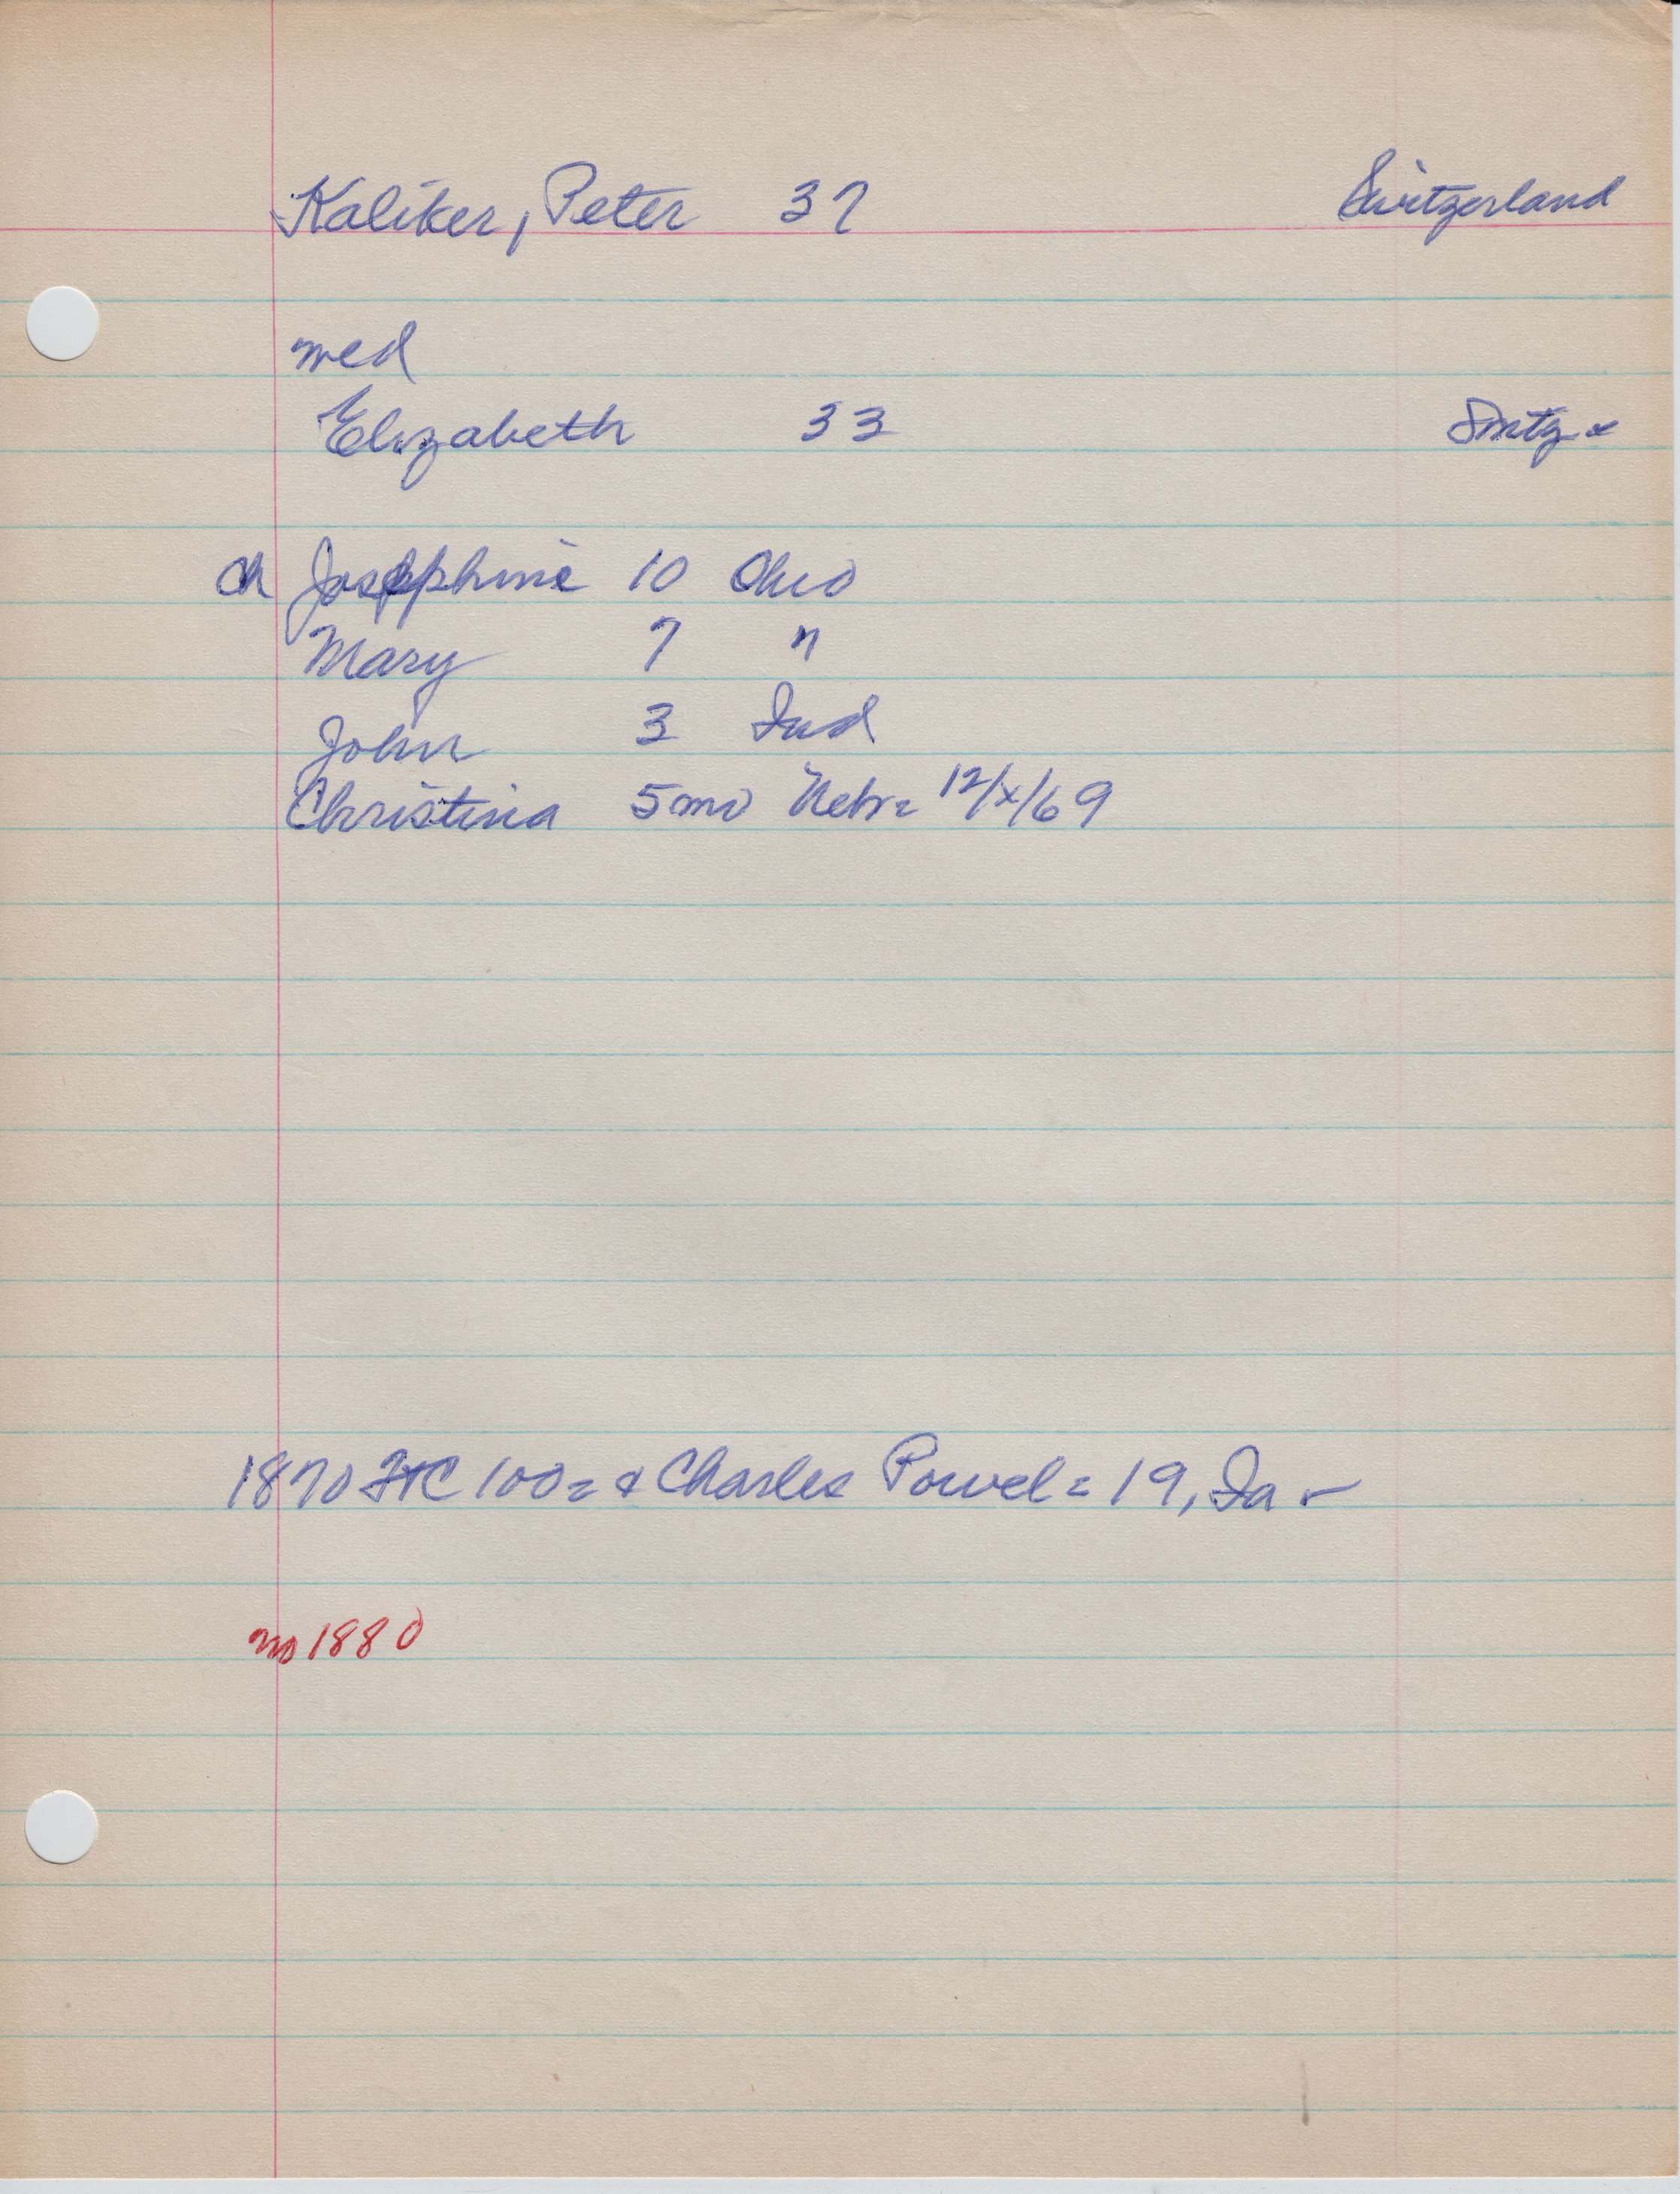 Kaliker, Peter 37 Switzerland
med
Elizabeth 33 Switz.
Ch Josephine 10 Ohio
Mary 7 "
John 3 Ind
Christina 5mo Nebr= 12/x/69
1870 FTC 100= & Charles Powel= 19, Ia -
no 1880